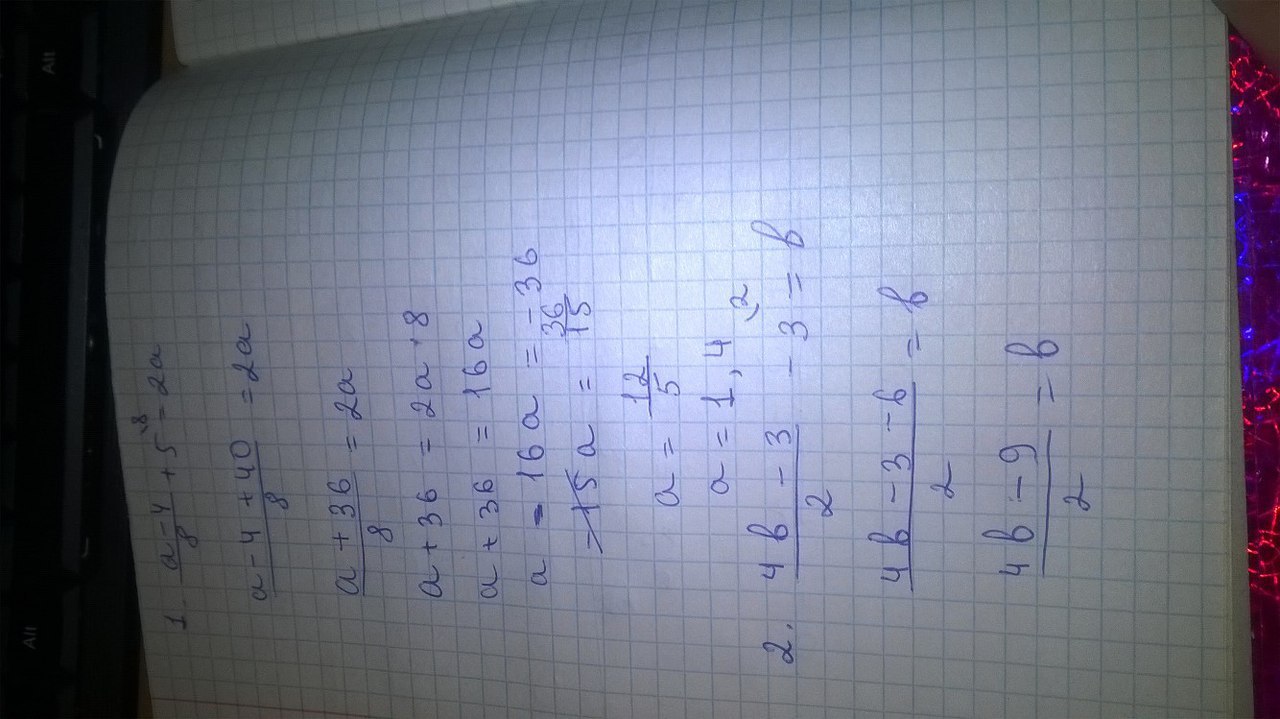 1. (a-4)/8 + 5^{·8} = 2a
(a-4+40)/8 = 2a
(a+36)/8 = 2a
a+36 = 2a·8
a+36 = 16a
a - 16a = -36
-15a = 36/15
a = 12/5
a = 1,4
2. (4b-3)/2 - 3^{·2} = b
(4b-3-6)/2 = b
(4b-9)/2 = b
Alt
Alt